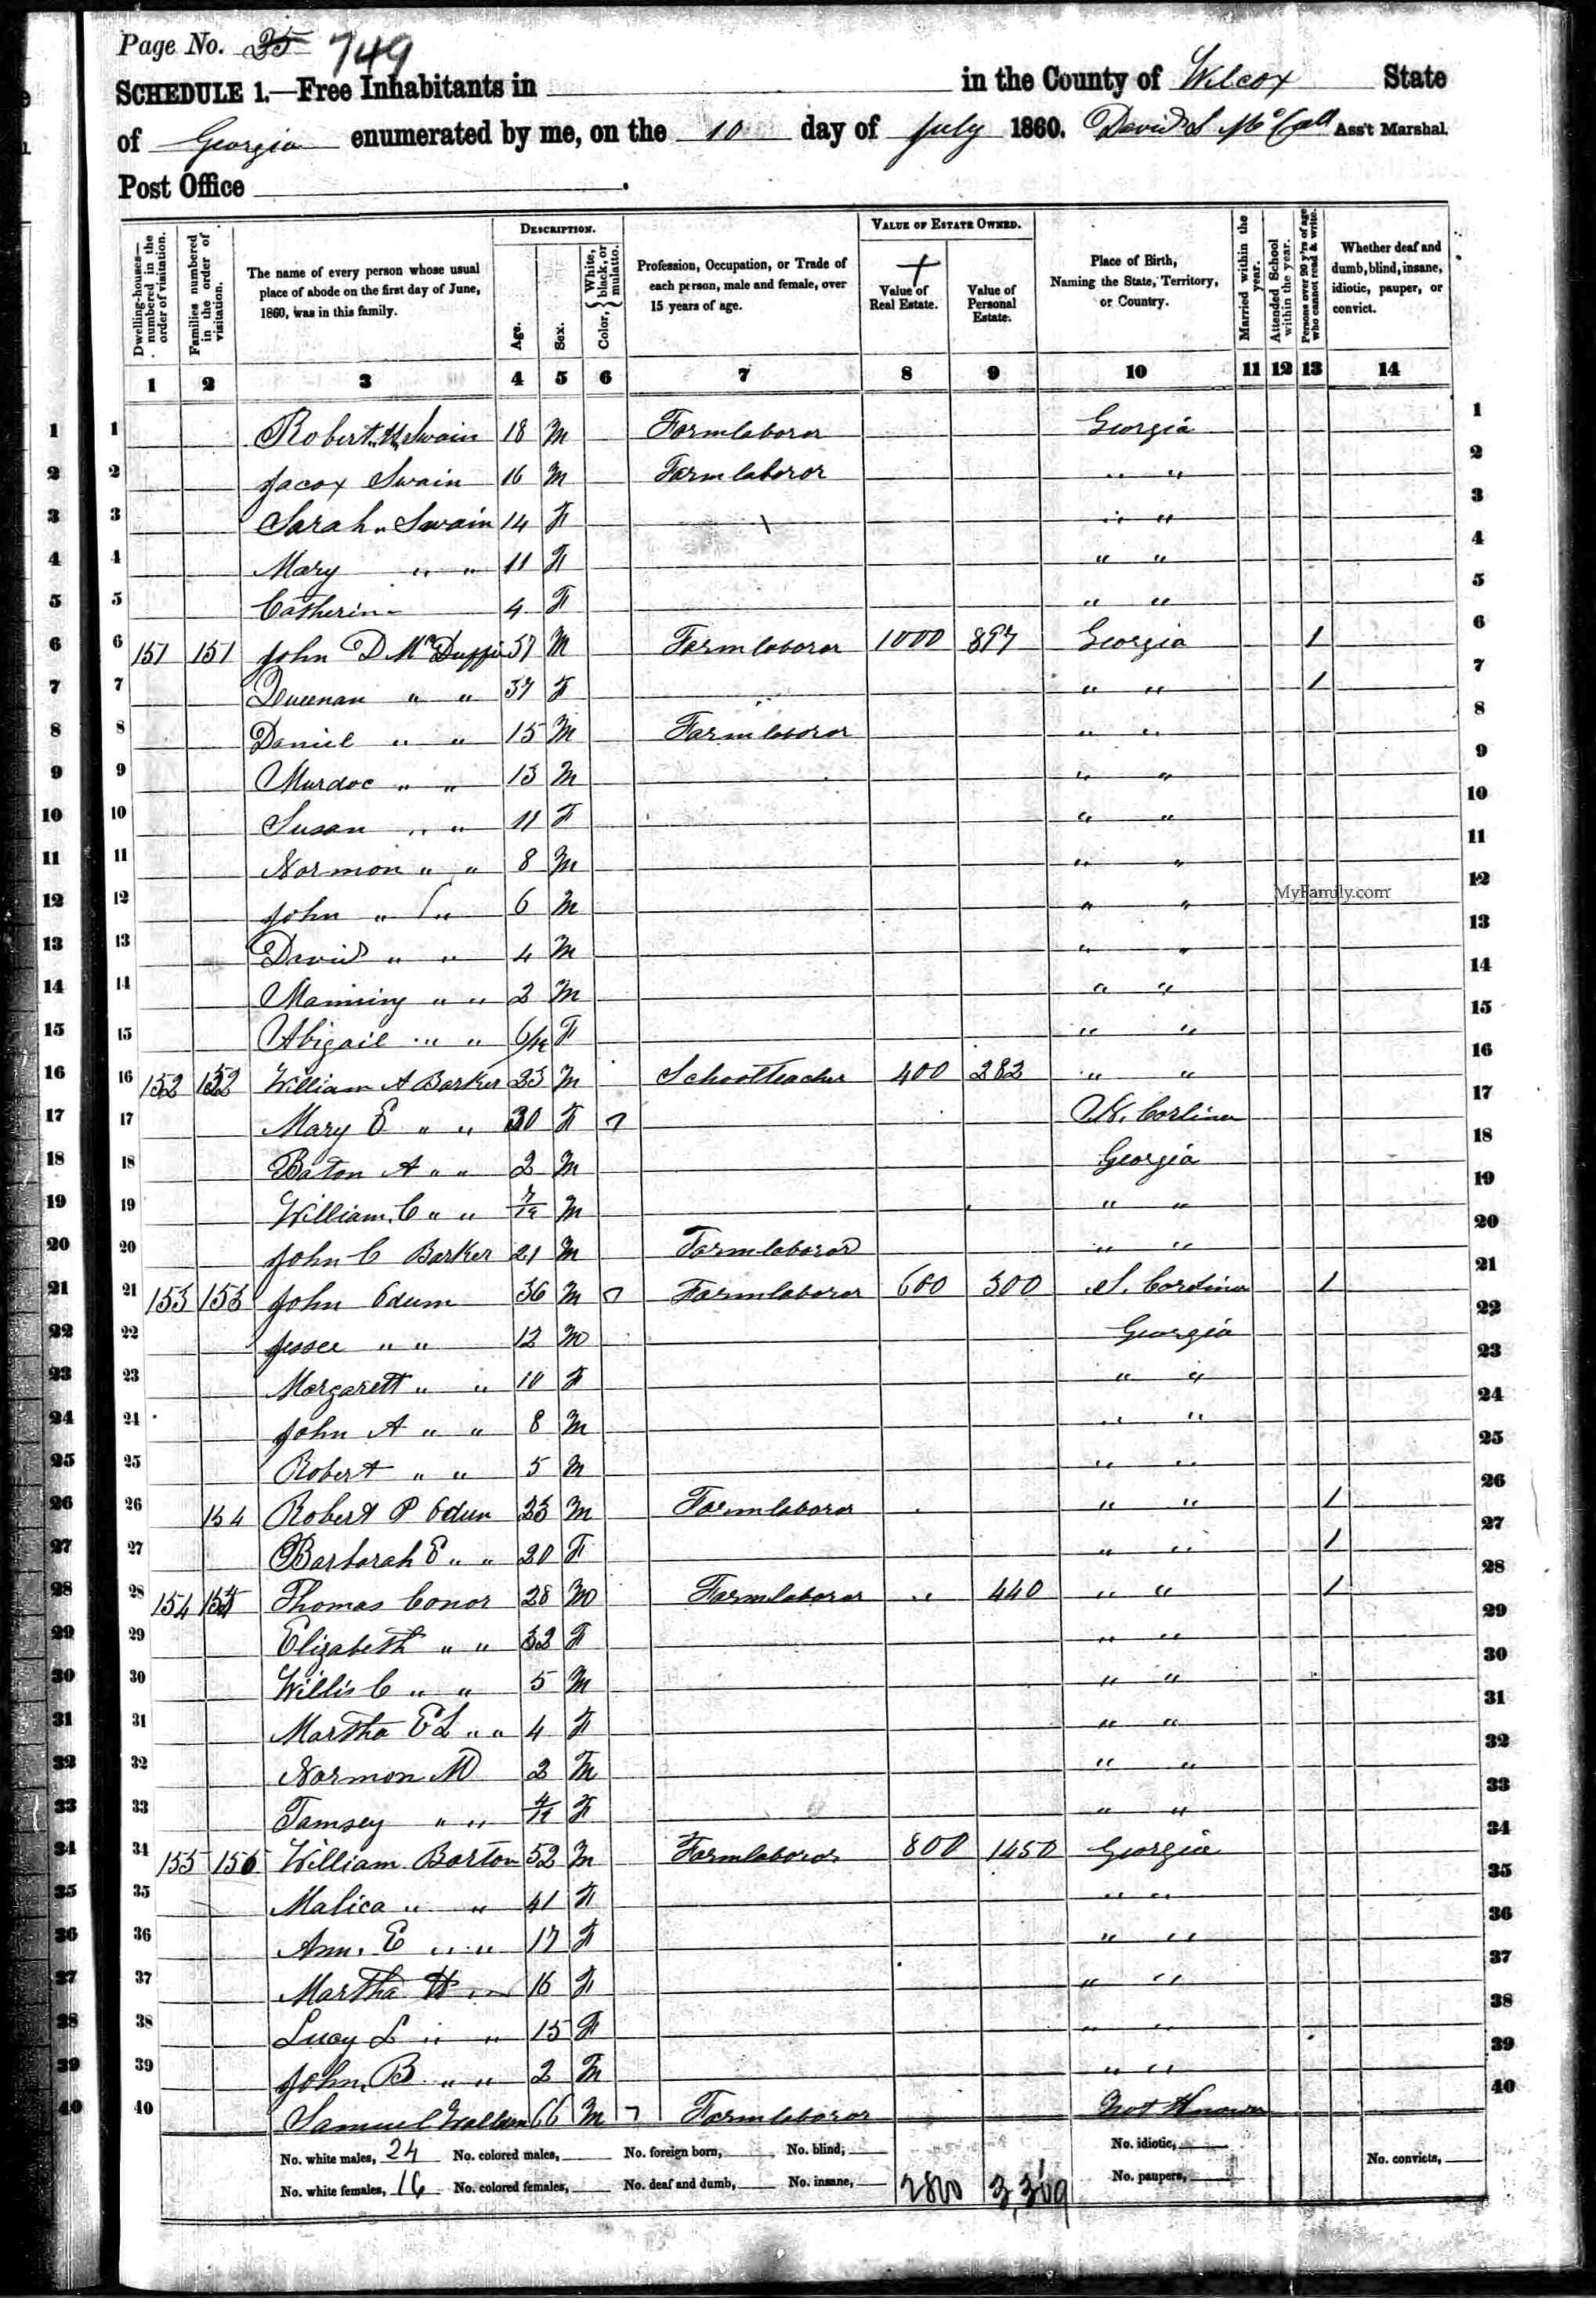 Page No. 35 749
SCHEDULE 1.—Free Inhabitants in in the County of Wilcox State
of Georgia enumerated by me, on the 10 day of July 1860. David S McCall Ass't Marshal.
Post Office .
Dwelling-houses—numbered in the order of visitation. Families numbered in the order of visitation. The name of every person whose usual place of abode on the first day of June, 1860, was in this family. DESCRIPTION. Age. Sex. Color, { White, black, or mulatto. Profession, Occupation, or Trade of each person, male and female, over 15 years of age. VALUE OF ESTATE OWNED. Value of Real Estate. Value of Personal Estate. Place of Birth, Naming the State, Territory, or Country. Married within the year. Attended School within the year. Persons over 20 y'rs of age who cannot read & write. Whether deaf and dumb, blind, insane, idiotic, pauper, or convict.
1 2 3 4 5 6 7 8 9 10 11 12 13 14
1 1 Robert Swain 18 M Farmlaboror Georgia 1
2 2 Jacox Swain 16 M Farmlaboror " " 2
3 3 Sarah " Swain 14 F " " 3
4 4 Mary " " 11 F " " 4
5 5 Catherine 4 F " " 5
6 6 151 151 John D McDuffie 37 M Farmlaboror 1000 897 Georgia 1 6
7 7 " " 37 F " " 1 7
8 8 Daniel " " 15 M Farmlaboror " " 8
9 9 Murdoc " " 13 M " " 9
10 10 Susan " " 11 F " " 10
11 11 Normon " " 8 M " " 11
12 12 John " " 6 M " " 12
MyFamily.com
13 13 David " " 4 M " " 13
14 14 Manning " " 2 M " " 14
15 15 Abigail " " 6/12 F " " 15
16 16 152 152 William A Barker 23 M Schoolteacher 400 282 " " 16
17 17 Mary E " " 30 F N. Corlina 17
18 18 Baton A " " 2 M Georgia 18
19 19 William C " " 7/12 M " " 19
20 20 John C Barker 21 M Farmlaboror " " 20
21 21 153 153 John Odum 36 M Farmlaboror 600 300 S. Corlina 1 21
22 22 Jessee " " 12 M Georgia 22
23 23 Margarett " " 10 F " " 23
24 24 John A " " 8 M " " 24
25 25 Robert " " 5 M " " 25
26 26 154 Robert P Odun 23 M Farmlaboror " " 1 26
27 27 Barborah E " " 20 F " " 1 27
28 28 154 155 Thomas Conor 28 M Farmlaboror " 440 " " 1 28
29 29 Elizabeth " " 32 F " " 29
30 30 Willis C " " 5 M " " 30
31 31 Martha E L " " 4 F " " 31
32 32 Normon M 2 M " " 32
33 33 Tamsey " " 4/12 F " " 33
34 34 155 156 William Barton 52 M Farmlaboror 800 1450 Georgia 34
35 35 Malica " " 41 F " " 35
36 36 Ann. E " " 17 F " " 36
37 37 Martha H " " 16 F " " 37
38 38 Lucy L " " 15 F " " 38
39 39 John, B " " 2 M " " 39
40 40 Samuel 66 M Farmlaboror Not Known 40
No. white males, 24 No. colored males, No. foreign born, No. blind, No. idiotic, No. convicts,
No. white females, 16 No. colored females, No. deaf and dumb, No. insane, 2800 3,369 No. paupers,